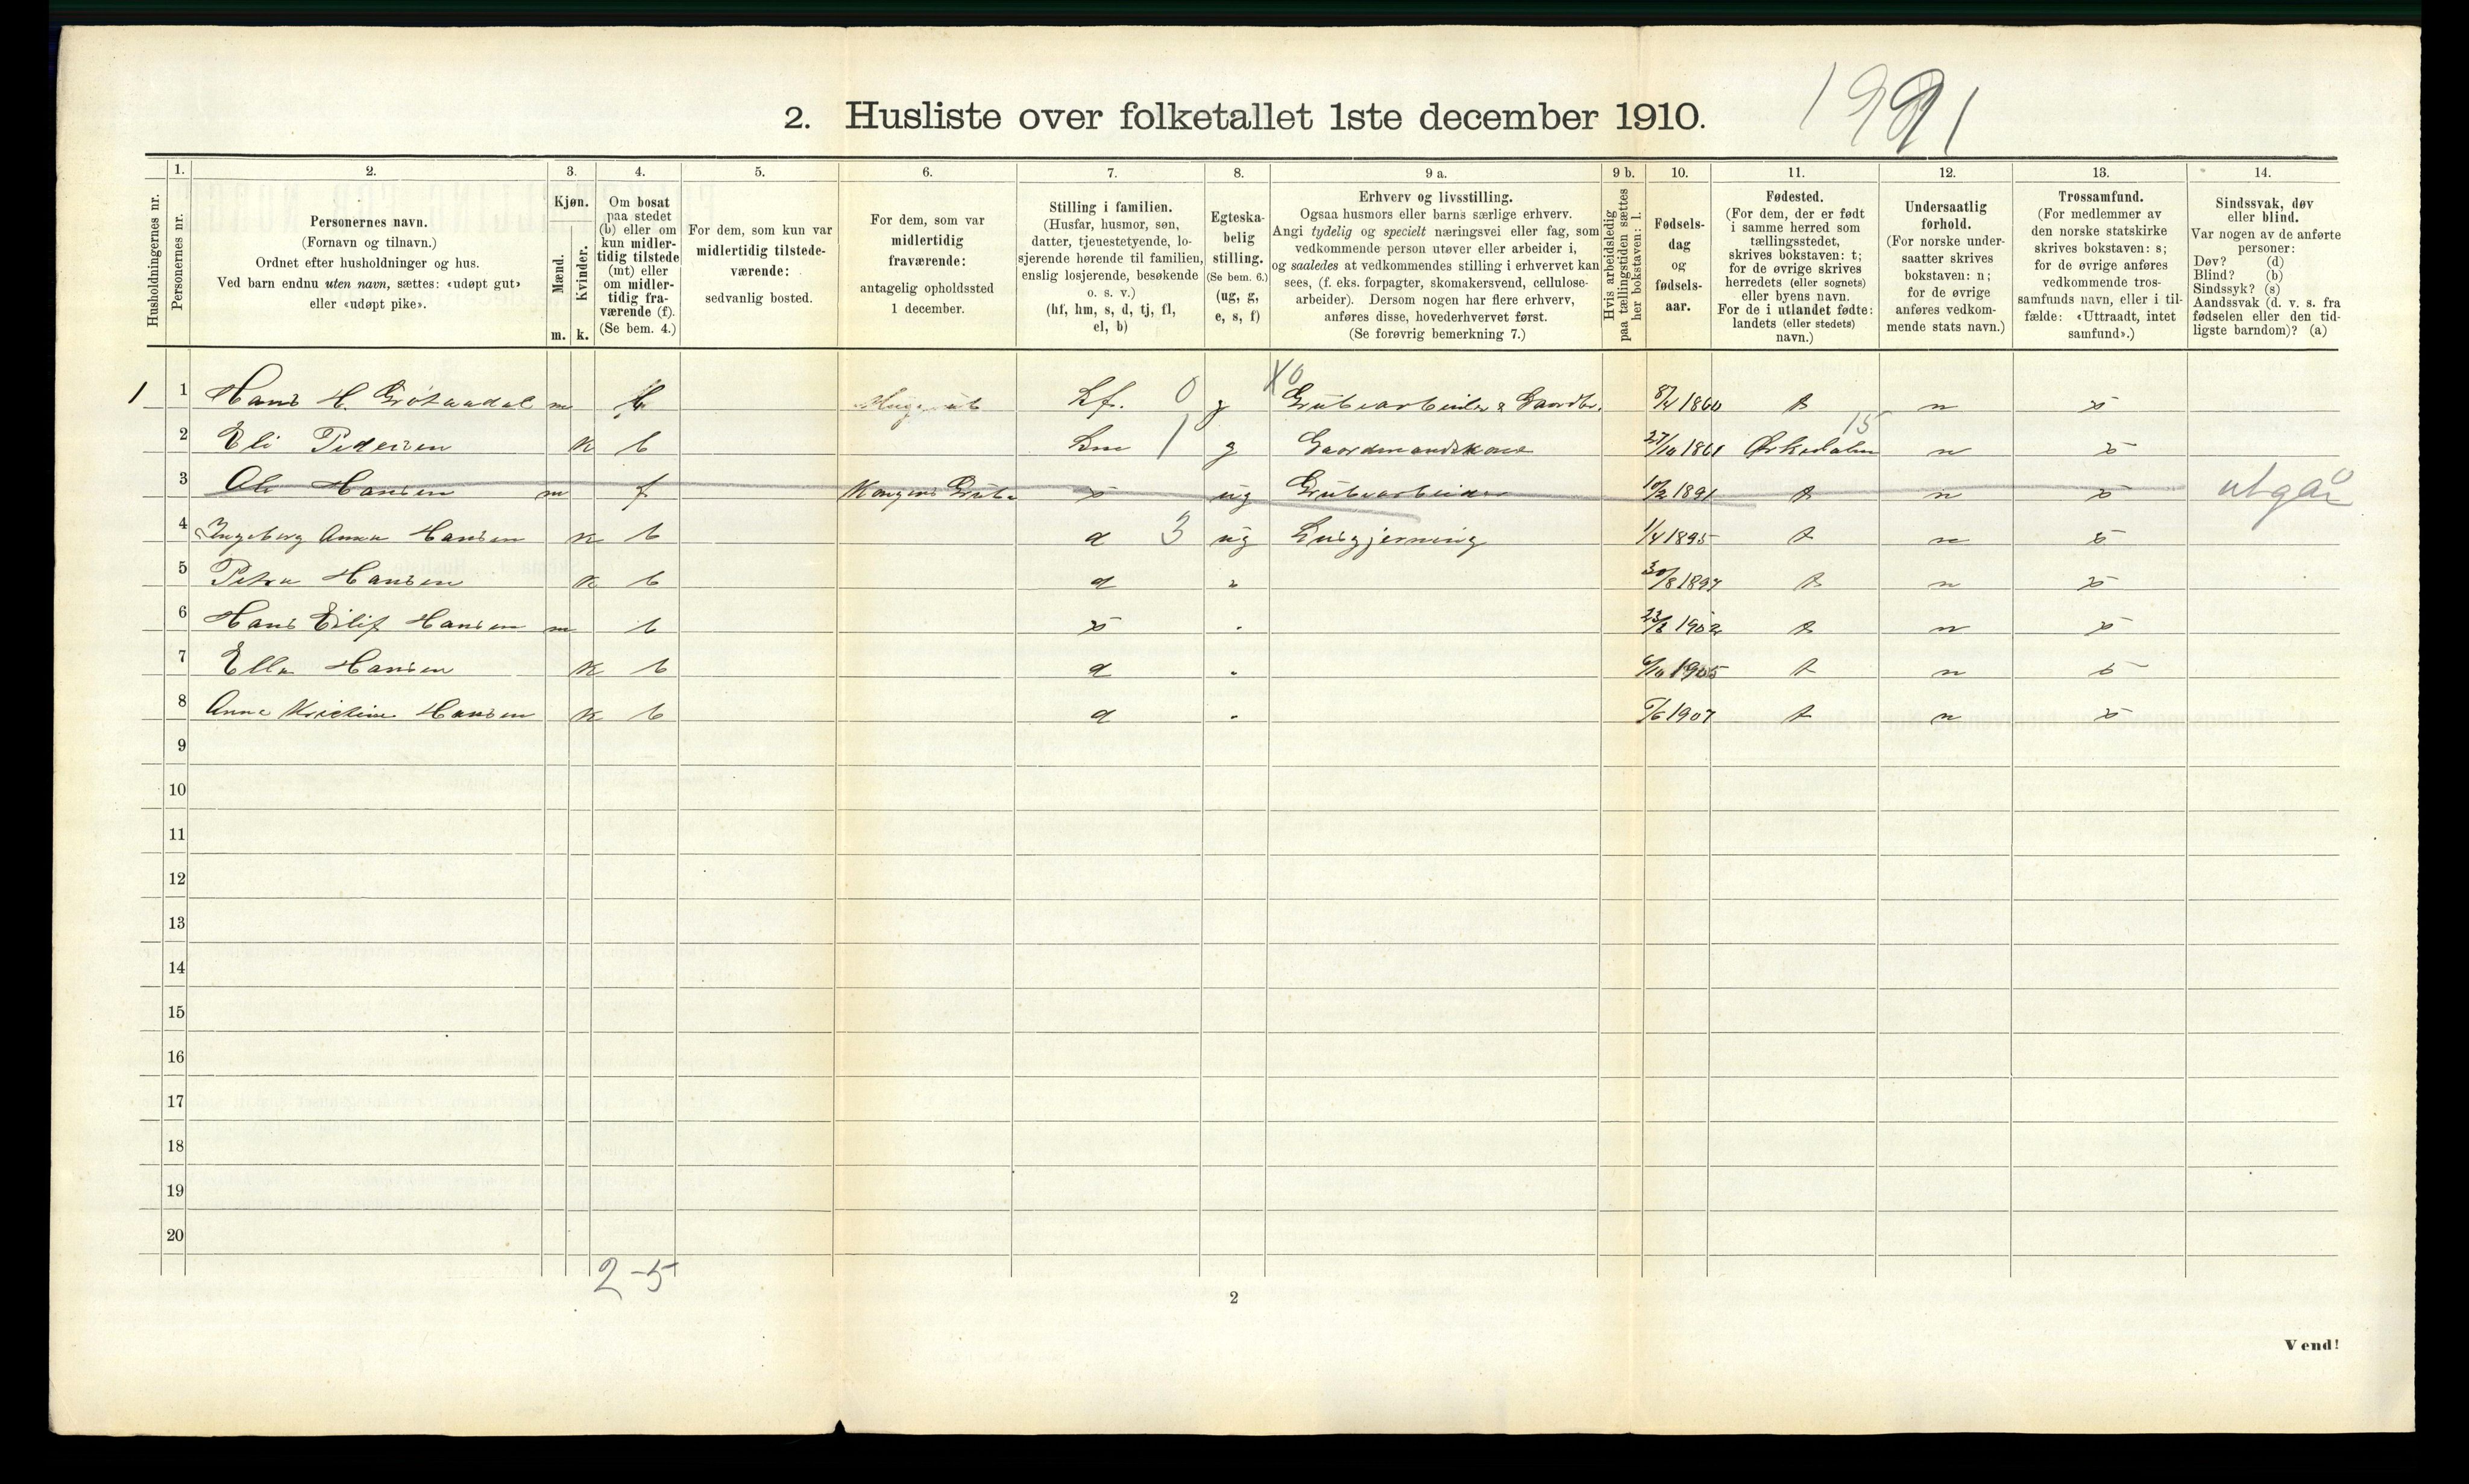 1991
2. Husliste over folketallet 1ste december 1910.
Husholdningernes nr.
1. Personernes nr.
2. Personernes navn.
(Fornavn og tilnavn.)
Ordnet efter husholdninger og hus.
Ved barn endnu uten navn, sættes: «udøpt gut»
eller «udøpt pike».
3. Kjøn.
Mænd. Kvinder.
m. k.
4. Om bosat
paa stedet
(b) eller om
kun midler-
tidig tilstede
(mt) eller
om midler-
tidig fra-
værende (f).
(Se bem. 4.)
5. For dem, som kun var
midlertidig tilstede-
værende:
sedvanlig bosted.
6. For dem, som var
midlertidig
fraværende:
antagelig opholdssted
1 december.
7. Stilling i familien.
(Husfar, husmor, søn,
datter, tjenestetyende, lo-
sjerende hørende til familien,
enslig losjerende, besøkende
o. s. v.)
(hf, hm, s, d, tj, fl,
el, b)
8. Egteska-
belig
stilling.
(Se bem. 6.)
(ug, g,
e, s, f)
9 a. Erhverv og livsstilling.
Ogsaa husmors eller barns særlige erhverv.
Angi tydelig og specielt næringsvei eller fag, som
vedkommende person utøver eller arbeider i,
og saaledes at vedkommendes stilling i erhvervet kan
sees, (f. eks. forpagter, skomakersvend, cellulose-
arbeider). Dersom nogen har flere erhverv,
anføres disse, hovederhvervet først.
(Se forøvrig bemerkning 7.)
9 b. Hvis arbeidsledig
paa tællingstiden sættes
her bokstaven: l.
10. Fødsels-
dag
og
fødsels-
aar.
11. Fødested.
(For dem, der er født
i samme herred som
tællingsstedet,
skrives bokstaven: t;
for de øvrige skrives
herredets (eller sognets)
eller byens navn.
For de i utlandet fødte:
landets (eller stedets)
navn.)
12. Undersaatlig
forhold.
(For norske under-
saatter skrives
bokstaven: n;
for de øvrige
anføres vedkom-
mende stats navn.)
13. Trossamfund.
(For medlemmer av
den norske statskirke
skrives bokstaven: s;
for de øvrige anføres
vedkommende tros-
samfunds navn, eller i til-
fælde: «Uttraadt, intet
samfund».)
14. Sindssvak, døv
eller blind.
Var nogen av de anførte
personer:
Døv? (d)
Blind? (b)
Sindssyk? (s)
Aandssvak (d. v. s. fra
fødselen eller den tid-
ligste barndom)? (a)
1 1 Hans H. m b hf. 0 g X0 Grubearbeider & Gaardbr. 1860 t n s
2 Eli Pedersen k b hm 1 g Gaardmandskone 27/10 1861 Ørkedalen 15 n s
3 Ole Hansen m f Kongens Grube s ug Grubearbeider 10/2 1891 t n s utgår
4 Ingeborg Anna Hansen k b d 3 ug Husgjerning 1/4 1895 t n s
5 Petra Hansen k b d " 30/8 1897 t n s
6 Hans Eilif Hansen m b s " 1902 t n s
7 Ella Hansen k b d " 6/10 1905 t n s
8 Anna Kristine Hansen k b d " 6/6 1907 t n s
9
10
11
12
13
14
15
16
17
18
19
20
2-5
2
Vend!